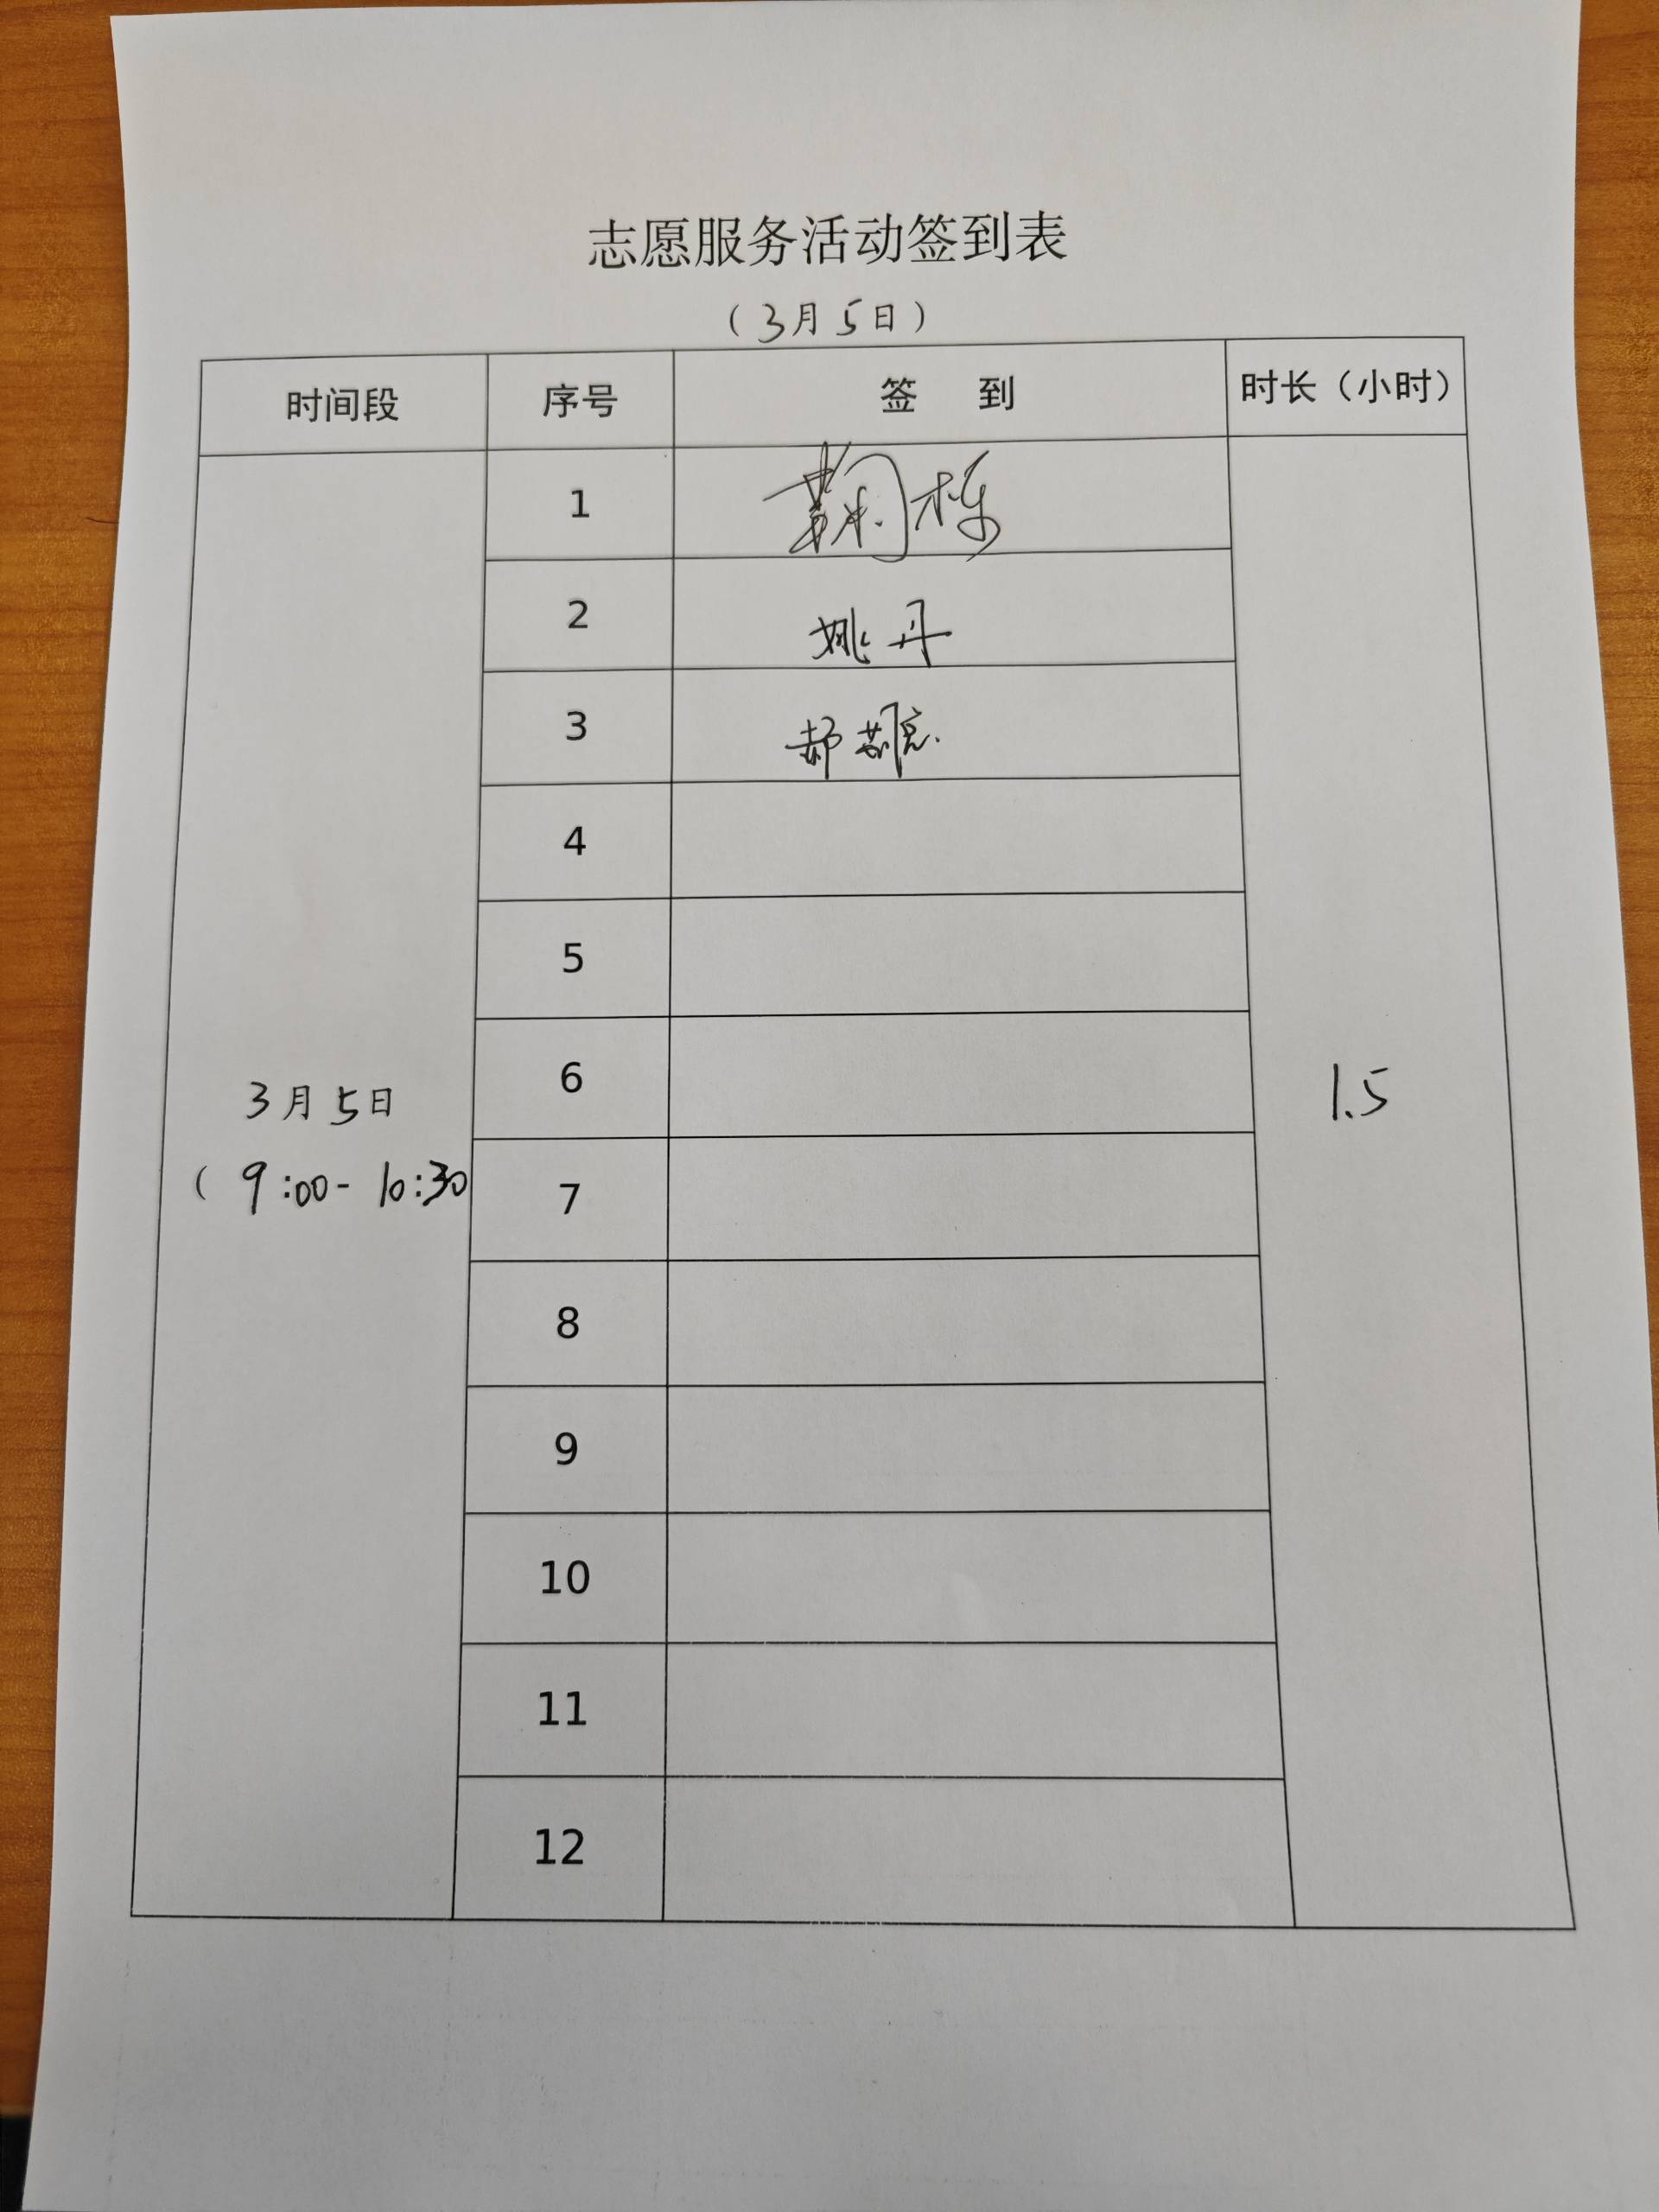 志愿服务活动签到表
（3月5日）
时间段 序号 签 到 时长（小时）
1 鞠栋
2 姚丹
3 郝
4
5
6
3月5日 1.5
（9:00-10:30
7
8
9
10
11
12